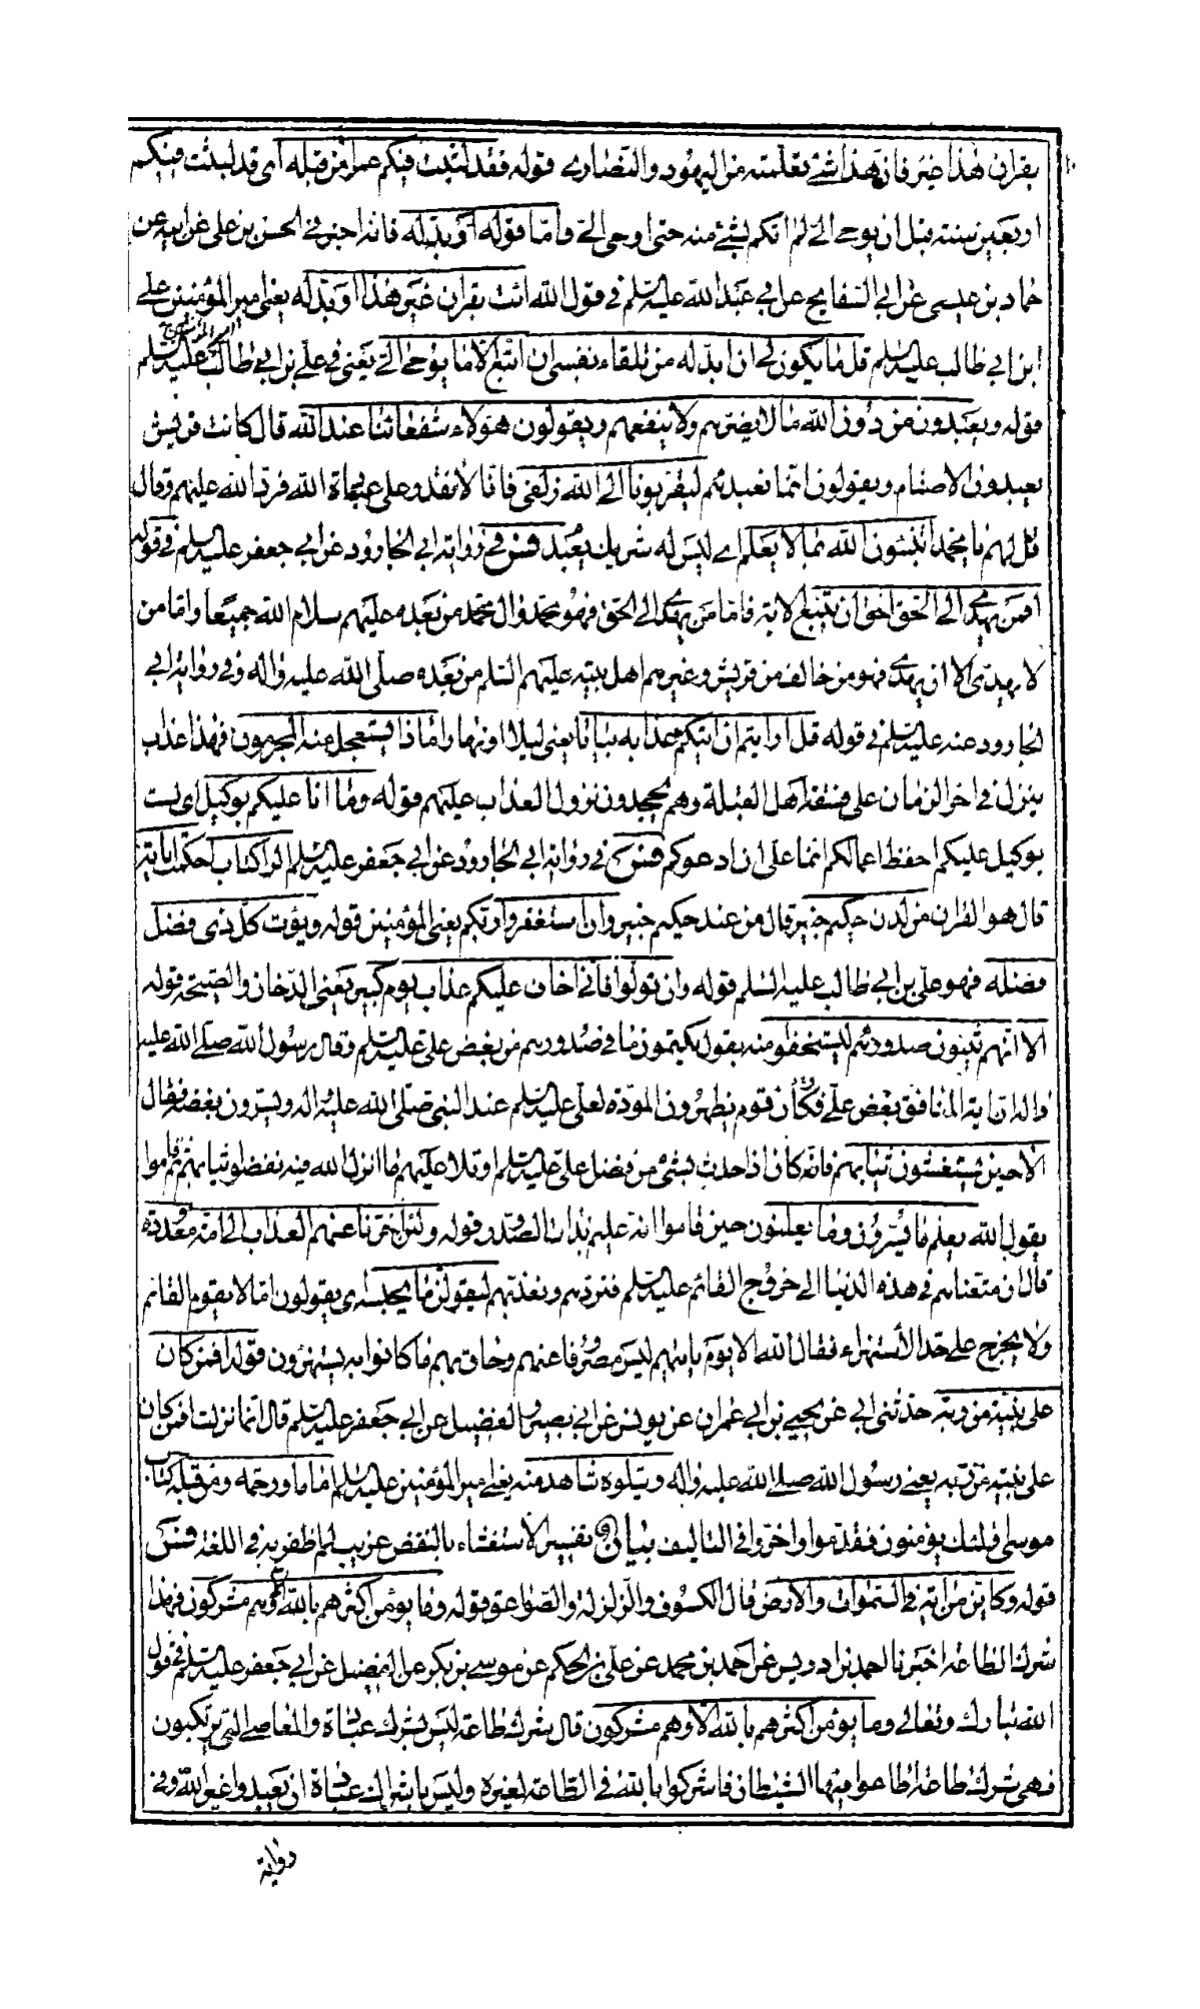 بقران هذا غيره فان هذا شئ تعلمته من اليهود والنصارى قوله فقد لبثت فيكم عمرا من قبله اى قد لبثت فيكم
اربعين سنة قبل ان يوحى الى لم اتكم بشئ منه حتى اوحى الى واما قوله او بدله فانه اخبرنى الحسن بن على عن ابيه عن
حماد بن عيسى عن ابى السفاتج عن ابى عبد الله عليه السلم فى قول الله ائت بقران غير هذا او بدله يعنى امير المؤمنين على
ابن ابى طالب عليه السلم قل ما يكون لى ان ابدله من تلقاء نفسى ان اتبع الا ما يوحى الى يعنى فى على بن ابى طالب عليه السلم
قوله ويعبدون من دون الله ما لا يضرهم ولا ينفعهم ويقولون هؤلاء شفعائنا عند الله قال كانت قريش
يعبدون الاصنام ويقولون انما نعبدهم ليقربونا الى الله زلفى فانا لا نقدر على عبادة الله فرد الله عليهم وقال
قل لهم يا محمد اتنبئون الله بما لا يعلم اى ليس له شريك يعبد فس فى رواية ابى الجارود عن ابى جعفر عليه السلم فى قوله
افمن يهدى الى الحق احق ان يتبع الاية فاما من يهدى الى الحق فهو محمد وال محمد من بعده عليهم سلام الله جميعا واما من
لا يهدى الا ان يهدى فهو من خالف من قريش وغيرهم اهل بيته عليهم السلم من بعده صلى الله عليه واله وفى رواية ابى
الجارود عنه عليه السلم فى قوله قل ارايتم ان اتيكم عذابه بياتا يعنى ليلا او نهارا ماذا يستعجل منه المجرمون فهذا عذاب
ينزل فى اخر الزمان على فسقة اهل القبلة وهم يجحدون نزول العذاب عليهم قوله وما انا عليكم بوكيل اى لست
بوكيل عليكم احفظ اعمالكم انما على ان ادعوكم فس فى رواية ابى الجارود عن ابى جعفر عليه السلم الر كتاب احكمت اياته
قال هو القران من لدن حكيم خبير قال من عند حكيم خبير وان استغفروا ربكم يعنى المؤمنين قوله ويؤت كل ذى فضل
فضله فهو على بن ابى طالب عليه السلم قوله وان تولوا فانى اخاف عليكم عذاب يوم كبير يعنى الدخان والصيحة قوله
الا انهم يثنون صدورهم ليستخفوا منه يقول يكتمون ما فى صدورهم من بغض على عليه السلم وقال رسول الله صلى الله عليه
واله ان اية المنافق بغض على فكان قوم يظهرون المودة لعلى عليه السلم عند النبى صلى الله عليه واله ويسرون بغضه فقال
الا حين يستغشون ثيابهم فانه كان اذا حدث بشئ من فضل على عليه السلم او تلا عليهم ما انزل الله فيه نفضوا ثيابهم ثم قاموا
يقول الله يعلم ما يسرون وما يعلنون حين قاموا انه عليم بذات الصدور قوله ولئن اخرنا عنهم العذاب الى امة معدودة
قال ان متعناهم فى هذه الدنيا الى خروج القائم عليه السلم فنردهم ونعذبهم ليقولن ما يحبسه اى يقولون اما لا يقوم القائم
ولا يخرج على حد الاستهزاء فقال الله الا يوم ياتيهم ليس مصروفا عنهم وحاق بهم ما كانوا به يستهزؤن قوله افمن كان
على بينة من ربه حدثنى ابى عن يحيى بن ابى عمران عن يونس عن ابى بصير والفضيل عن ابى جعفر عليه السلم قال انما نزلت افمن كان
على بينة من ربه يعنى رسول الله صلى الله عليه واله ويتلوه شاهد منه يعنى امير المؤمنين عليه السلم اماما ورحمة ومن قبله كتاب
موسى اولئك يؤمنون فقدموا واخروا فى التاليف بيان تفسير الاستغشاء بالنفض غريب لم اظفر به فى اللغة فس
قوله وكاين من اية فى السموات والارض قال الكسوف والزلزلة والصواعق قوله وما يؤمن اكثرهم بالله الا وهم مشركون فهذا
شرك الطاعة اخبرنا احمد بن ادريس عن احمد بن محمد عن على بن الحكم عن موسى بن بكر عن الفضيل عن ابى جعفر عليه السلم فى قول
الله تبارك وتعالى وما يؤمن اكثرهم بالله الا وهم مشركون قال شرك طاعة ليس بشرك عبادة والمعاصى التى يرتكبون
فهى شرك طاعة اطاعوا فيها الشيطان فاشركوا بالله فى الطاعة لغيره وليس باشراك عبادة ان يعبدوا غير الله وفى
رواية